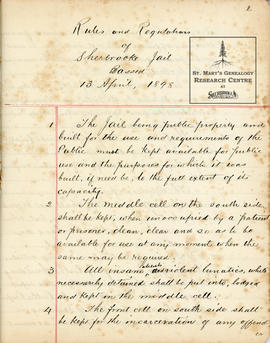 1.
Rules and Regulations
of
Sherbrooke Jail
Passed
13 April, 1898
ST. MARY'S GENEALOGY
RESEARCH CENTRE
AT
SHERBROOKE
1 The Jail being public property and
built for the use and requirements of the
Public must be kept available for public
use and the purposes for which it was
built, if need be, to the full extent of its
capacity.
2 The middle cell on the south side,
shall be kept, when unoccupied by a patient
or prisoner, clean, clear and so as to be
available for use at any moment when the
same may be required.
3 All insane patients violent lunatics, while
necessarily detained shall be put into, lodged
and kept in the middle cell.
4 The front cell on south side shall
be kept for the incarceration of any offend